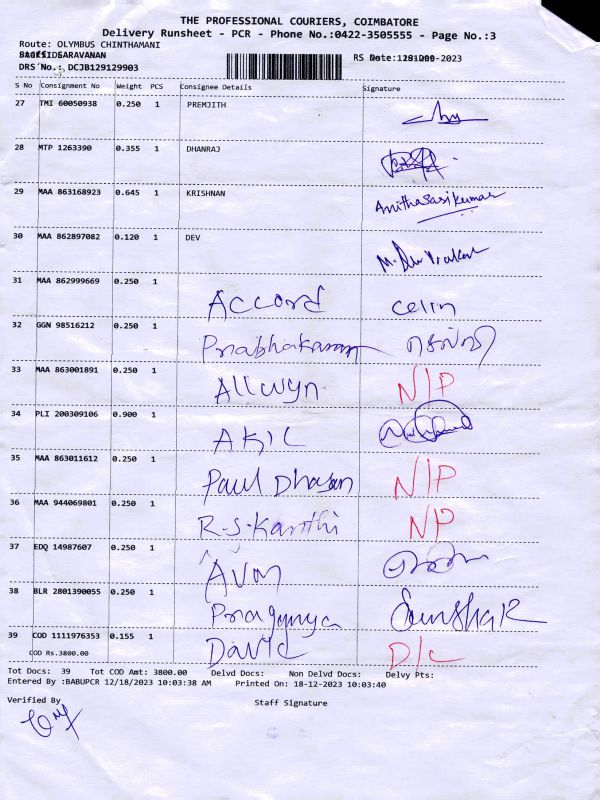 THE PROFESSIONAL COURIERS, COIMBATORE
Delivery Runsheet - PCR - Phone No.:0422-3505555 - Page No.:3
Route: OLYMBUS CHINTHAMANI
SARAVANAN
DRS No.: DCJB129129903
S No Consignment No Weight PCS Consignee Details Signature
27 TMI 60050938 0.250 1 PREMJITH
28 MTP 1263390 0.355 1 DHANRAJ
29 MAA 863168923 0.645 1 KRISHNAN Anithasasikumar
30 MAA 862897082 0.120 1 DEV
31 MAA 862999669 0.250 1 Accord Celin
32 GGN 98516212 0.250 1 Prabhakaran
33 MAA 863001891 0.250 1 Allwyn N/P
34 PLI 200309106 0.900 1 AKIL
35 MAA 863011612 0.250 1 Paul Dhasan N/P
36 MAA 944069801 0.250 1 R.S.Kanthi NP
37 EDQ 14987607 0.250 1
38 BLR 2801390055 0.250 1
39 COD 1111976353 0.155 1 David D/c
COD Rs.3800.00
Tot Docs: 39 Tot COD Amt: 3800.00 Delvd Docs: Non Delvd Docs: Delvy Pts:
Entered By :BABUPCR 12/18/2023 10:03:38 AM Printed On: 18-12-2023 10:03:40
Verified By
Staff Signature